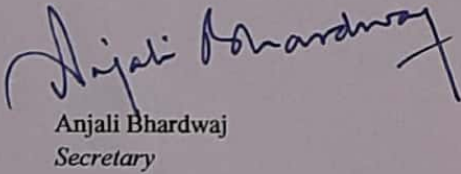 Anjali Bhardwaj
Anjali Bhardwaj
Secretary